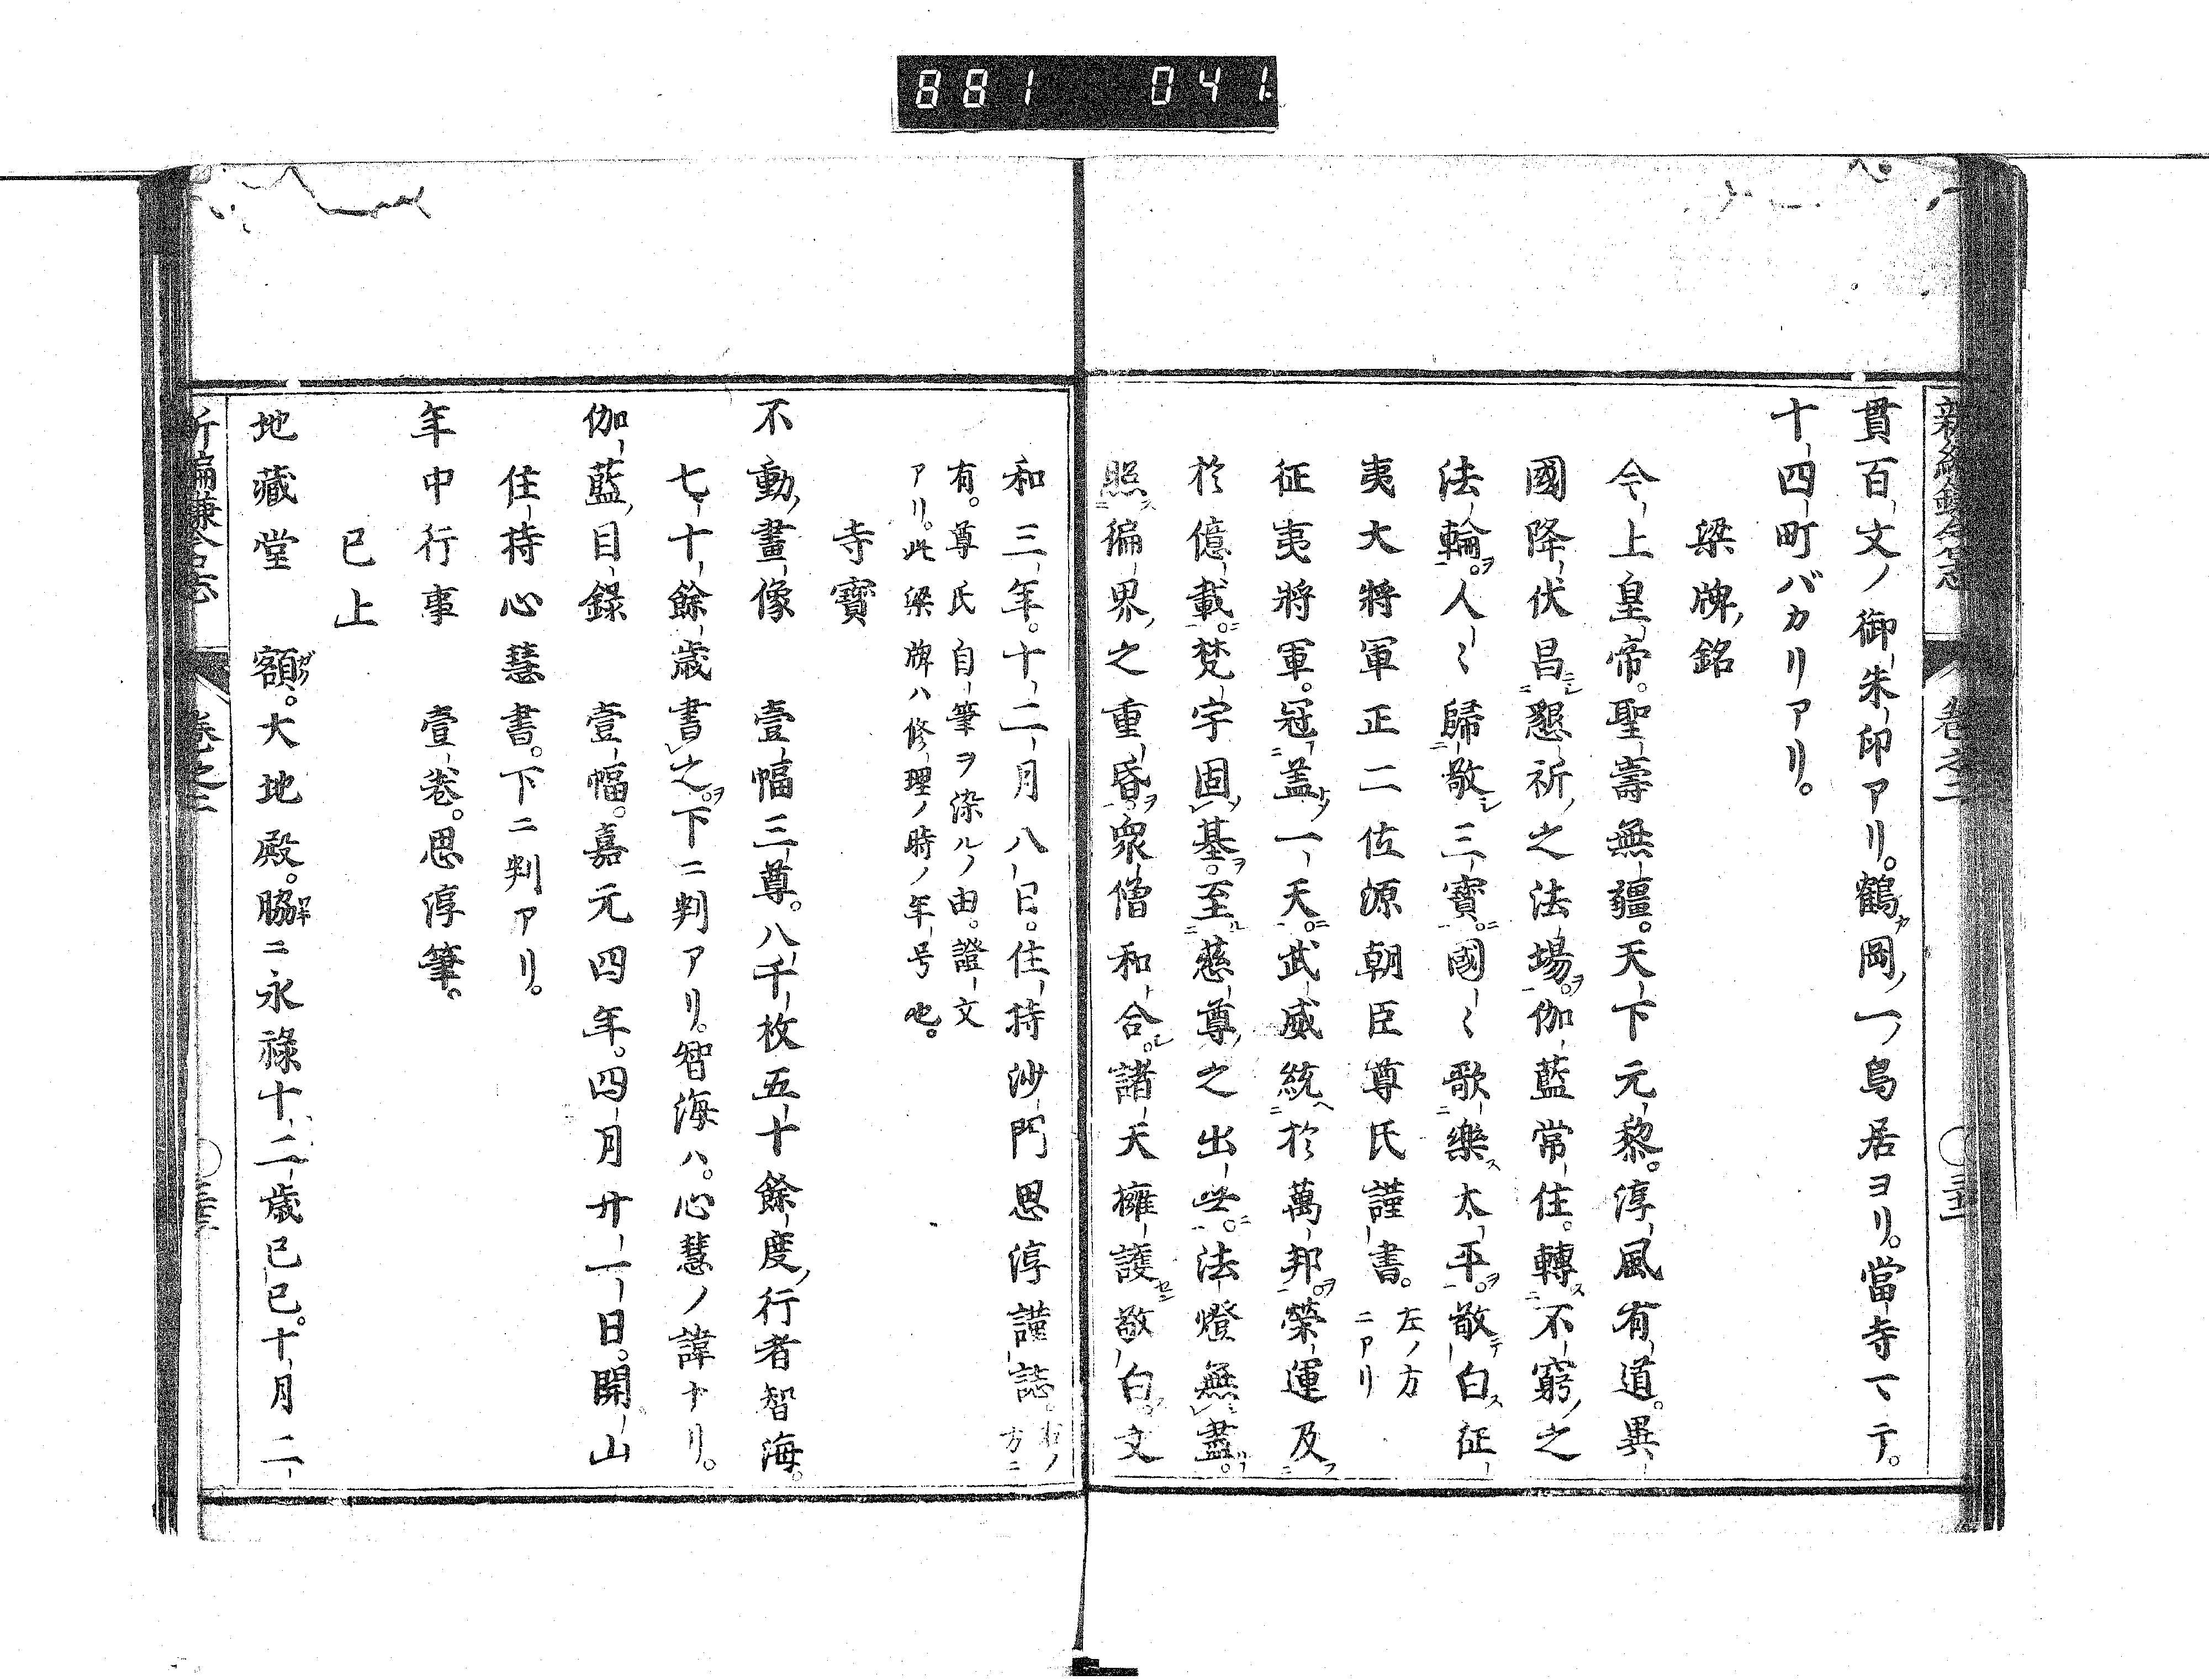 881 041
貫百文ノ御朱印アリ。鶴岡ノ一ノ鳥居ヨリ。當寺マテ。
十四町バカリアリ。
梁牌ノ銘
今上皇帝。聖壽無疆。天下元黎。淳風有道。異
國降伏昌懇祈之法場。伽藍常住。轉不窮之
法輪。人〻歸敬三寶。國〻歌樂太平。敬白征
夷大將軍正二位源朝臣尊氏謹書。左ノ方ニアリ
征夷將軍。冠蓋一天。武威統於萬邦。榮運及
於億載。梵宇固基。至慈尊之出世。法燈無盡。
照徧界之重昏。衆僧和合。諸天擁護敬白。文
和三年。十二月八日。住持沙門思淳謹誌。右ノ方ニ
有。尊氏自筆ヲ染ルノ由。證文
アリ。此梁牌ハ修理ノ時ノ年号也。
寺寶
不動ノ畫像 壹幅三尊。八千枚五十餘度ノ行者智海。
七十餘歳書之。下ニ判アリ。智海ハ。心慧ノ諱ナリ。
伽藍ノ目錄 壹幅。嘉元四年。四月廿一日。開山
住持心慧書。下ニ判アリ。
年中行事 壹卷。思淳筆。
已上
地藏堂 額。大地殿。脇ニ永祿十二歳己巳。十月二
新編鎌倉志 卷之二